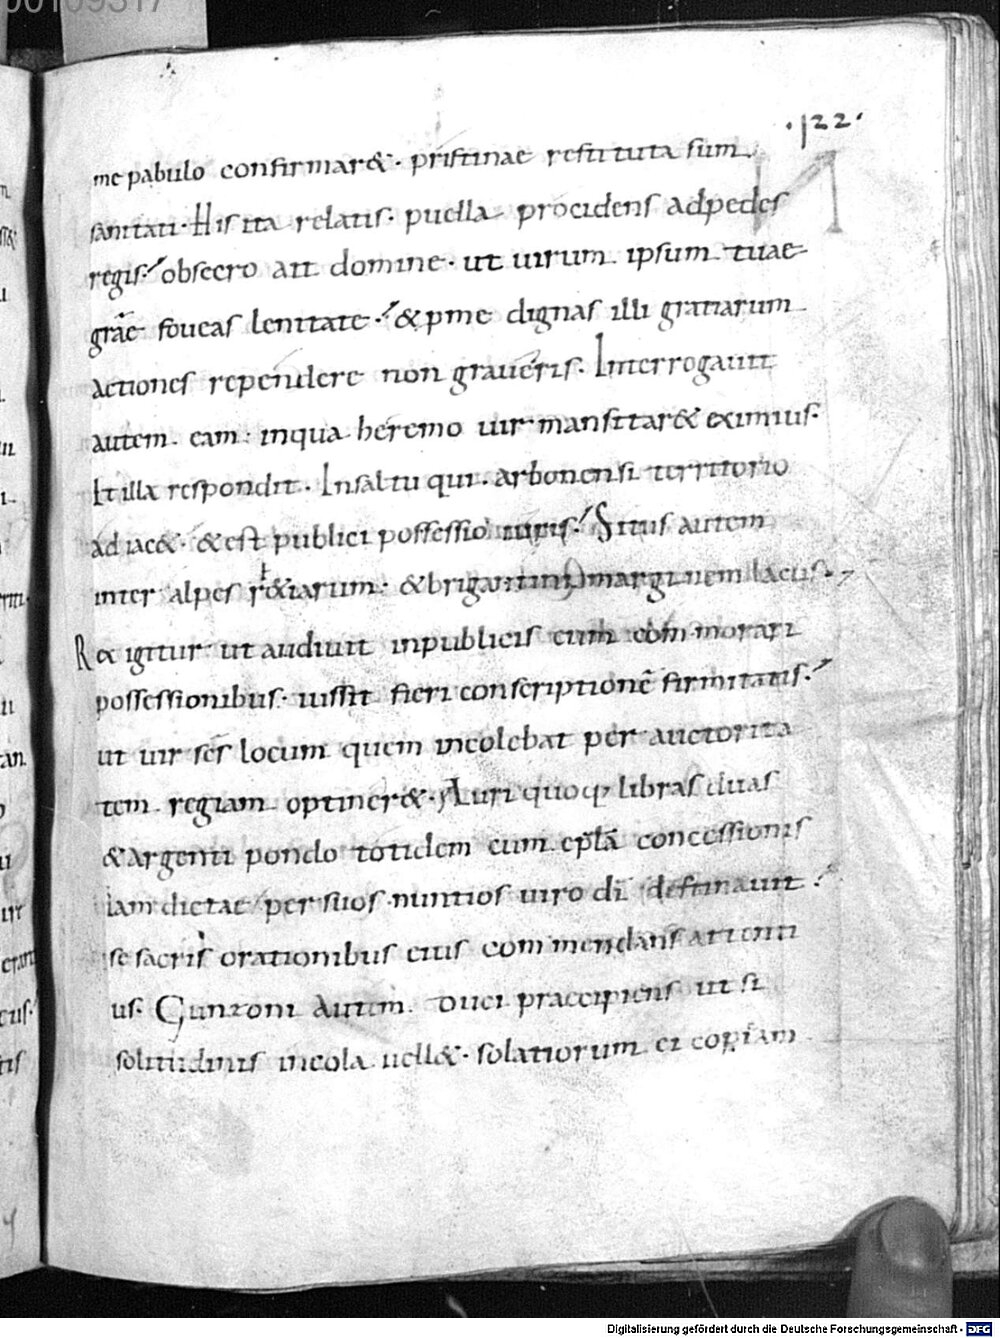 00109317
·122·
me pabulo confirmar&· pristinae restituta sum
sanitati· His ita relatis· puella procidens adpedes
regis· obsecro ait domine· ut uirum ipsum tuae
grāe foueas lenitate· & pme dignas illi gratiarum
actiones rependere non graueris· Interrogauit
autem eam· inqua heremo uir mansitar& eximius·
Et illa respondit· Insaltu qui· arbonensi territorio
adiac&· & est publici possessio iuris· Situs autem
inter alpes r&iarum· & brigantini marginem lacus·
Rex igitur ut audiuit inpublicis eum commorari
possessionibus· iussit fieri conscriptionē firmitatis·
ut uir scs locum quem incolebat per auctorita
tem regiam optiner&· Auri quoq; libras duas
& argenti pondo totidem cum epła concessionis
iam dictae per suos nuntios uiro dī destinauit·
se sacris orationibus eius commendans attenti
us· Cunzoni autem duci praecipiens ut si
solitudinis incola uell&· solatiorum ei copiam
Digitalisierung gefördert durch die Deutsche Forschungsgemeinschaft - DFG